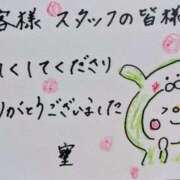 客様 スタッフの皆様
くしてくださり
りがとうございました